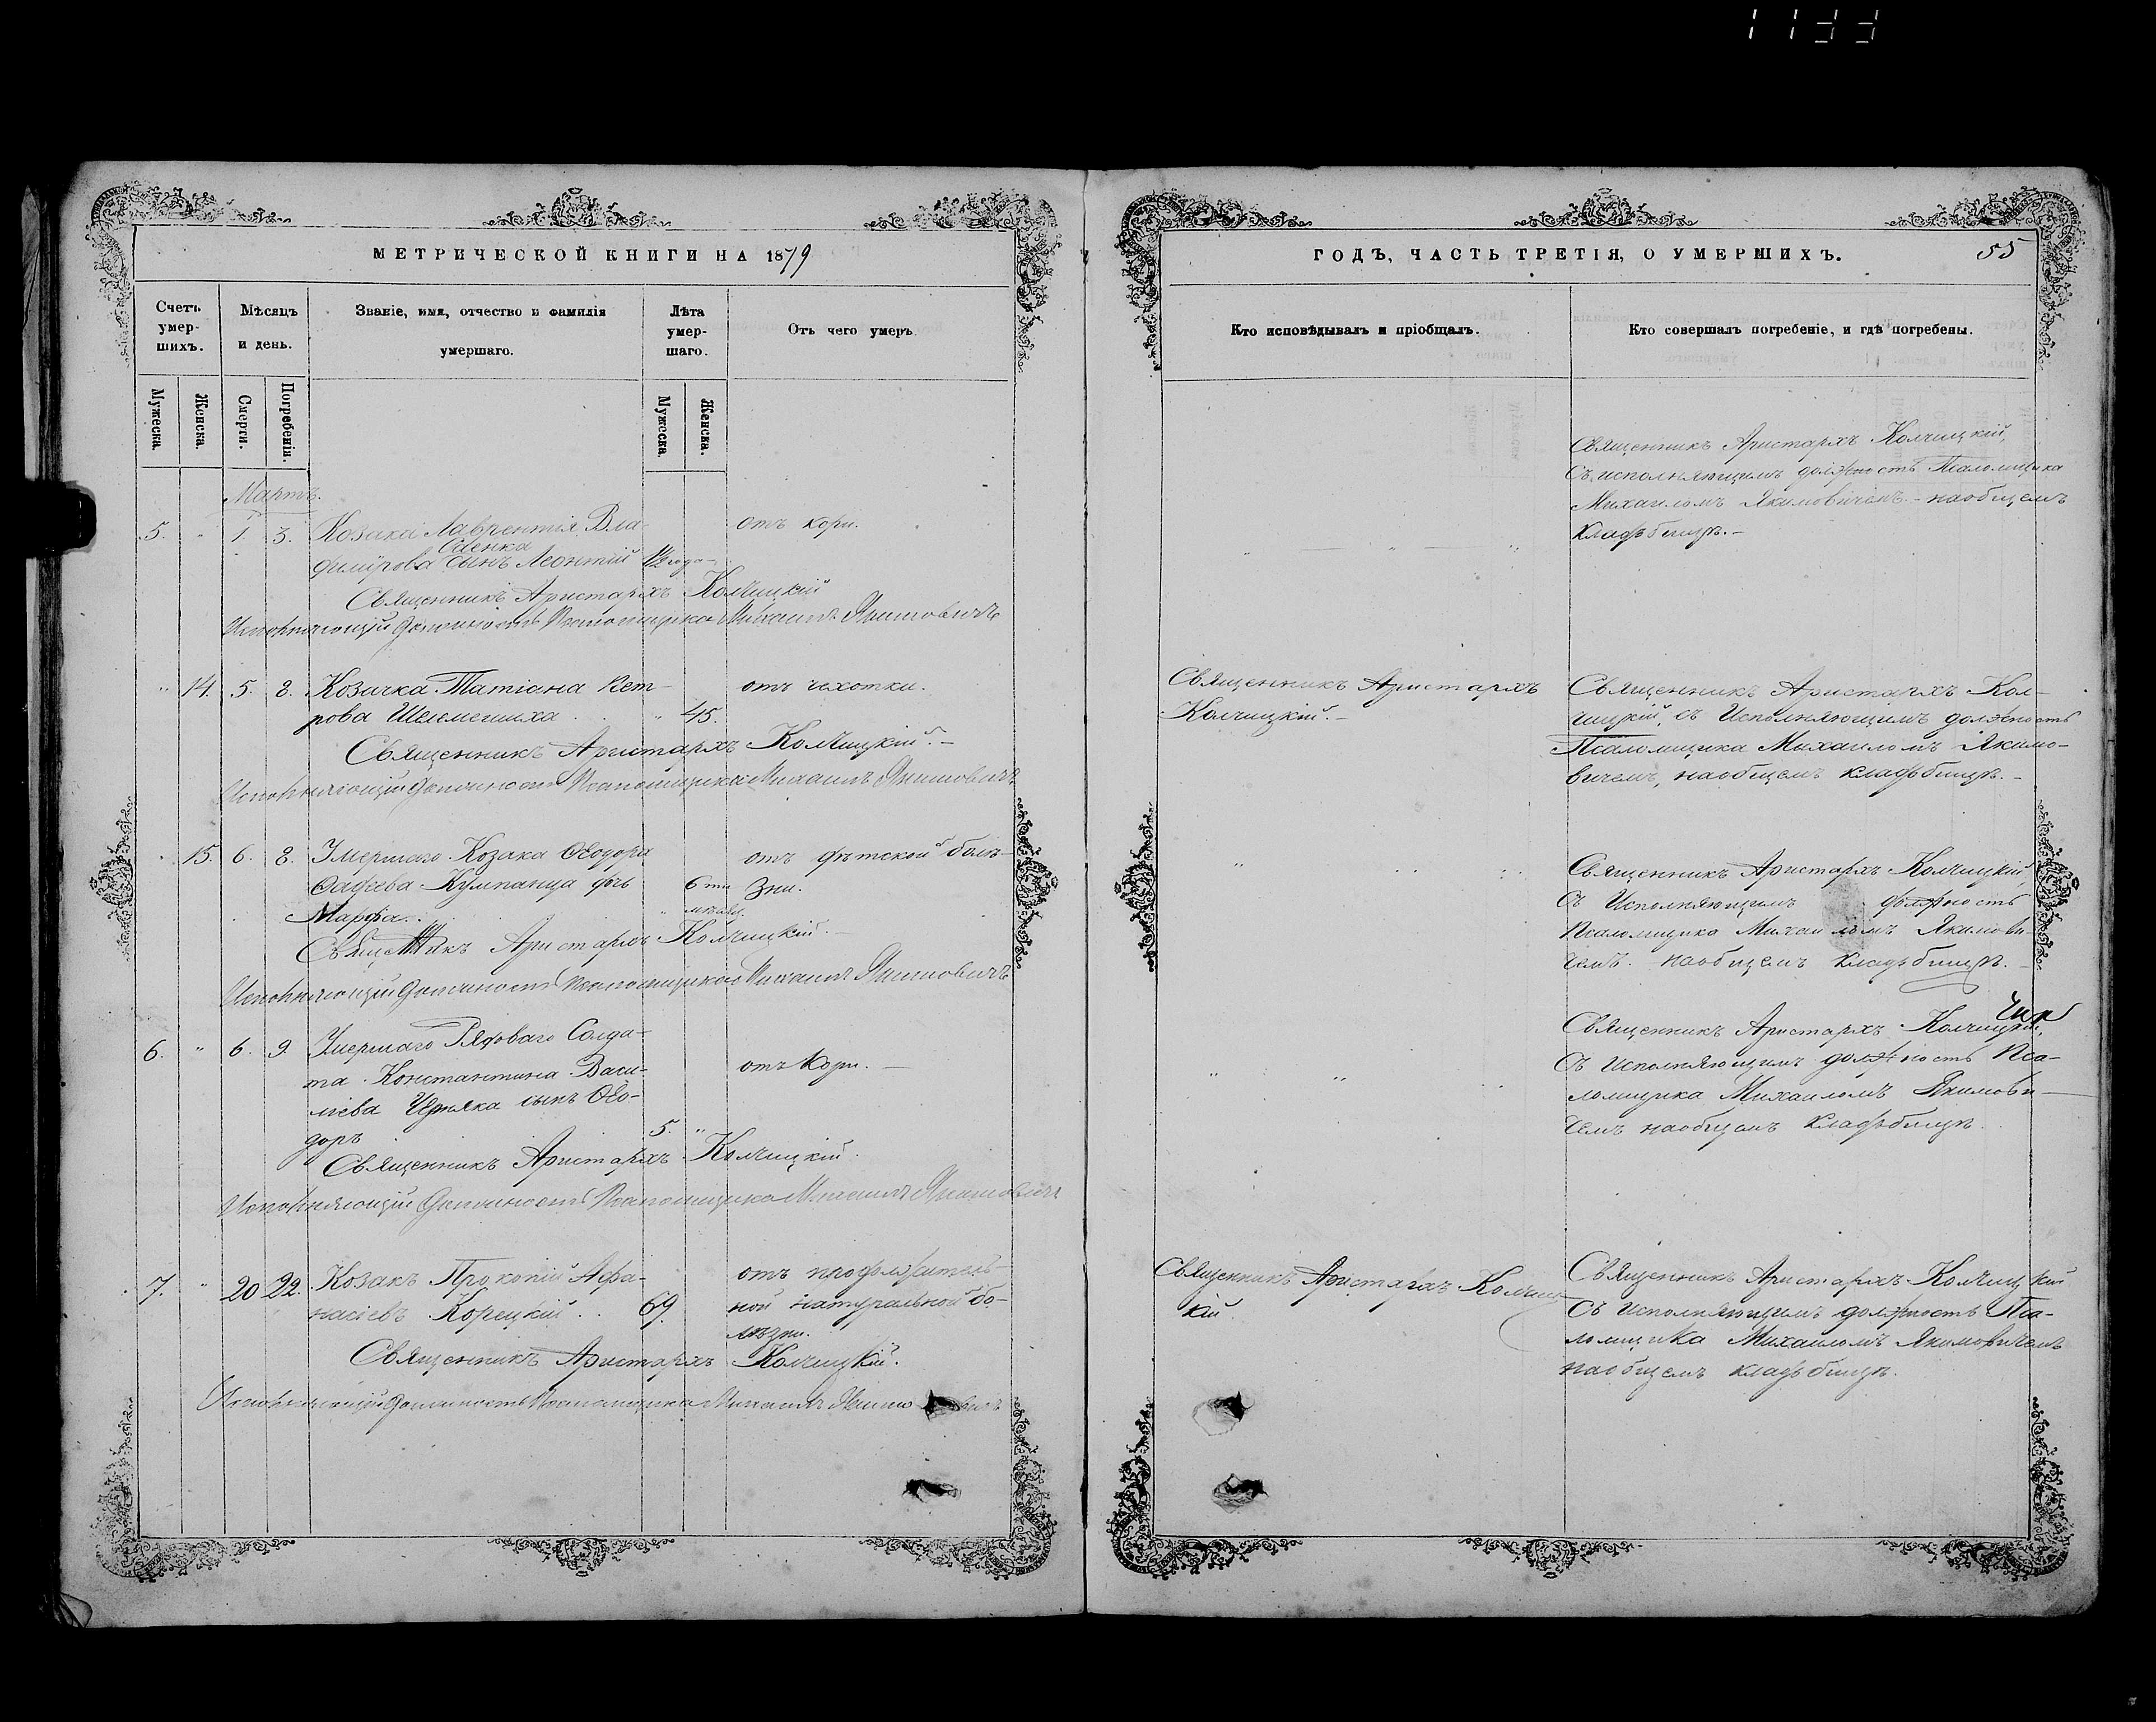 МЕТРИЧЕСКОЙ КНИГИ НА 1879
Счетъ умер-шихъ.
Мѣсяцъ и день.
Званіе, имя, отчество и фамилія умершаго.
Лѣта умер-шаго.
Отъ чего умеръ.
Мужеска.
Женска.
Смерти.
Погребенія.
Мужеска.
Женска.
Мартъ.
5. " 1 3. Козака Лаврентія Вла- отъ кори.
димірова сынъ Леонтій 1½ года
Священникъ Аристархъ Колчицкій
Исполняющій должность Псаломщика Михаилъ Якимовичъ
" 14. 5. 8. Козачка Татіана Пет- отъ чахотки.
рова " 45.
Священникъ Аристархъ Колчицкій.-
Исполняющій должность Псаломщика Михаилъ Якимовичъ
15. 6. 8. Умершаго Козака Ѳеодора отъ дѣтской болѣ-
Кумпанца дочь 6 ти зни.
Марфа. " мѣсяц.
Священникъ Аристархъ Колчицкій.-
Исполняющій должность Псаломщика Михаилъ Якимовичъ
6. " 6. 9. Умершаго Рядоваго Солда-
та Константина Васи- отъ Кори.-
лiева сынъ Ѳео-
доръ 5. "
Священникъ Аристархъ Колчицкій.
Исполняющій должность Псаломщика Михаилъ Якимовичъ
7. " 20 22. Козакъ Прокопій Афа- отъ продолжитель-
насіевъ Корецкій. 69. ной натуральной бо-
лѣзни.
Священникъ Аристархъ Колчицкій.
Исполняющій должность Псаломщика Михаилъ Якимовичъ
ГОДЪ, ЧАСТЬ ТРЕТІЯ, О УМЕРШИХЪ.
55
Кто исповѣдывалъ и пріобщалъ.
Кто совершалъ погребеніе, и гдѣ погребены.
Священникъ Аристархъ Колчицкій,
Съ исполняющимъ должность Псаломщика
Михаиломъ Якимовичемъ.- на общемъ
кладбищѣ.-
Священникъ Аристархъ
Колчицкій.-
Священникъ Аристархъ Кол-
чицкій, съ Исполняющимъ должность
Псаломщика Михаиломъ Якимо-
вичемъ, на общемъ кладбищѣ.-
Священникъ Аристархъ Колчицкій,
Съ Исполняющимъ должность
Псаломщика Михаиломъ Якимови-
чемъ. на общемъ кладбищѣ.-
Священникъ Аристархъ Колчицкій,
Съ исполняющимъ должность Пса-
ломщика Михаиломъ Якимови-
чемъ на общемъ кладбищѣ.
Священникъ Аристархъ Колчиц-
кій
Священникъ Аристархъ Колчицкій
Съ исполняющимъ должность Пса-
ломщика Михаиломъ Якимовичемъ
на общемъ кладбищѣ.